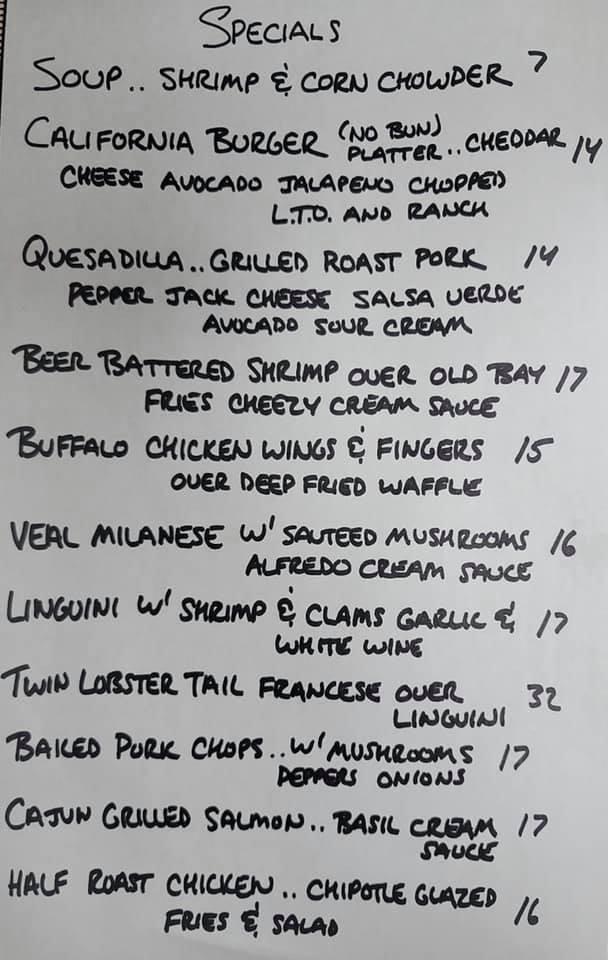 SPECIALS
SOUP.. SHRIMP & CORN CHOWDER 7
CALIFORNIA BURGER (NO BUN) PLATTER.. CHEDDAR 14
CHEESE AVOCADO JALAPENO CHOPPED
L.T.O. AND RANCH
QUESADILLA.. GRILLED ROAST PORK 14
PEPPER JACK CHEESE SALSA VERDE
AVOCADO SOUR CREAM
BEER BATTERED SHRIMP OVER OLD BAY 17
FRIES CHEEZY CREAM SAUCE
BUFFALO CHICKEN WINGS & FINGERS 15
OVER DEEP FRIED WAFFLE
VEAL MILANESE W/ SAUTEED MUSHROOMS 16
ALFREDO CREAM SAUCE
LINGUINI W/ SHRIMP & CLAMS GARLIC & 17
WHITE WINE
TWIN LOBSTER TAIL FRANCESE OVER 32
LINGUINI
BAKED PORK CHOPS.. W/ MUSHROOMS 17
PEPPERS ONIONS
CAJUN GRILLED SALMON.. BASIL CREAM 17
SAUCE
HALF ROAST CHICKEN.. CHIPOTLE GLAZED 16
FRIES & SALAD